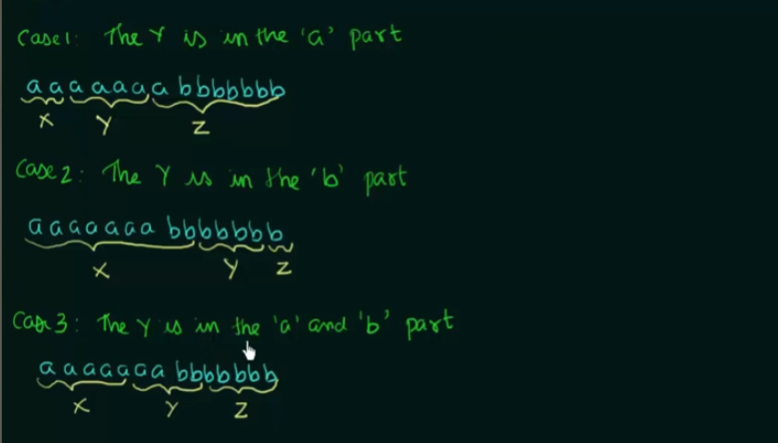 Case 1: The Y is in the 'a' part
a a a a a a a b b b b b b b
X Y Z
Case 2: The Y is in the 'b' part
a a a a a a a b b b b b b b
X Y Z
Case 3: The Y is in the 'a' and 'b' part
a a a a a a a b b b b b b b
X Y Z